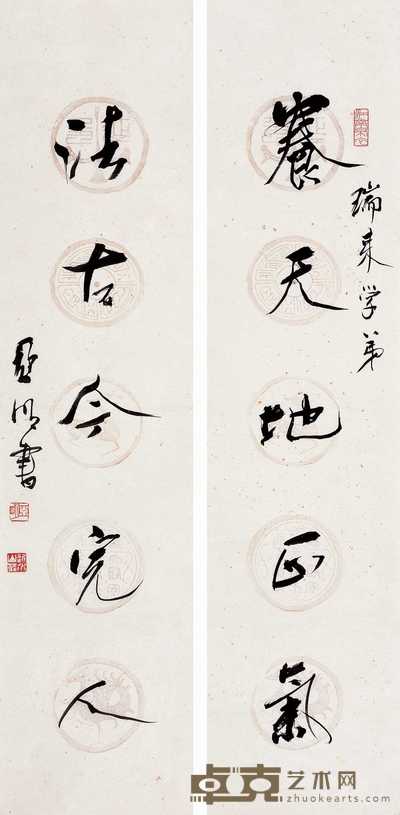 養天地正氣
瑞来学弟
法古今完人
亞明書
卓克艺术网
zhuokearts.com